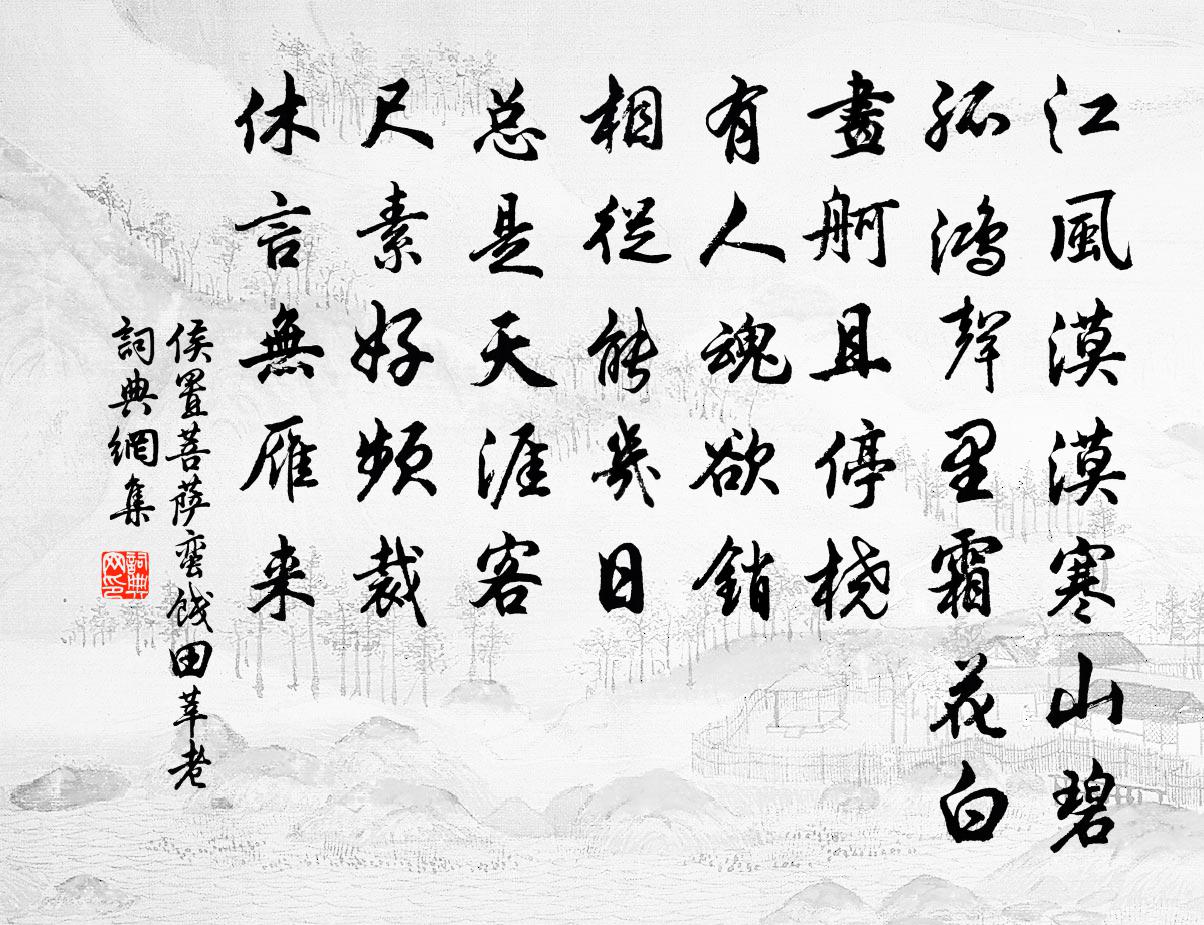 江風漠漠寒山碧
孤鴻聲里霜花白
畫舸且停橈
有人魂欲銷
相從能幾日
总是天涯客
尺素好頻裁
休言無雁来
侯置菩薩蠻餞田莘老
詞典網集
詞典网印